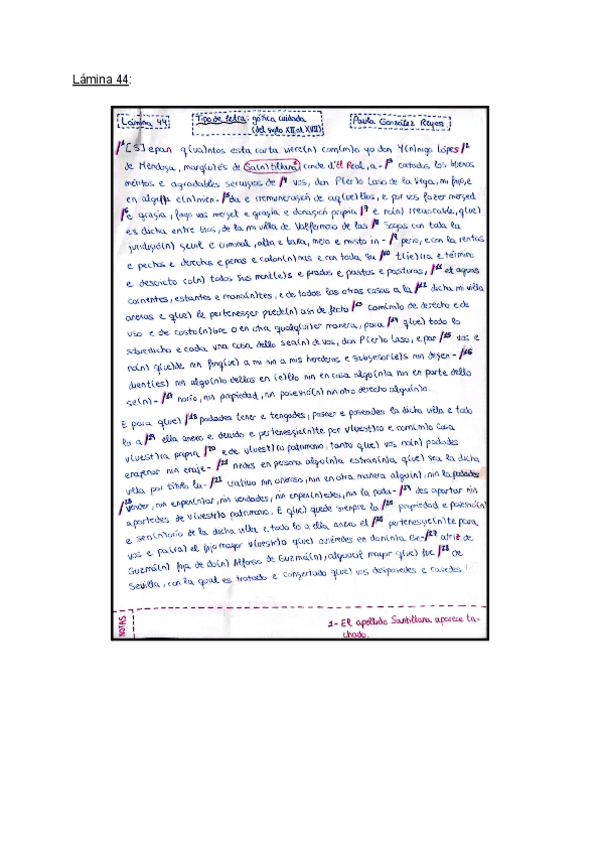 Lámina 44:
Lámina 44 Tipo de letra: gótica cuidada Paula González Reyes
(del siglo XII al XVII)
/1 [S]epan q(ua)ntos esta carta viere(n) com(m)o yo don Y(n)nigo Lópes /2
de Mendoça, marq(u)és de Sa(n)tillana1 conde d'el Real, a- /3 catados los buenos
méritos e agradables serviçios de /4 vos, don P(er)o Laso de la Vega, mi fijo, e
en alguna e(n)mien- /5 da e rremuneraçión de aq(ue)llos, e por vos fazer merçed
/6 e graçia, fago vos merçet e graçia e donaçión propia /7 e no(n) rreuocable, q(ue)
es dicha entre biuos, de la mi villa de Valfermoso de las /8 Sogas con toda la
juridiçió(n) çeuil e criminal, alta e baxa, mero e misto in- /9 perio, e con la rentas
e pechos e derechos e penas e calon(n)ias e con toda su /10 t(ie)rra e término
e descricto co(n) todos sus mont(e)s e prados e pastos e pasturas, /11 et aguas
corrientes, estantes e mana(n)tes, e de todas las otras cosas a la /12 dicha mi villa
anexas e q(ue) le pertenesçer puede(n) asi de fecho /13 com(m)o de derecho e de
vso e de costu(n)bre o en otra qualq(u)ier manera, para /14 q(ue) todo lo
sobredicho e cada vna cosa dello sea(n) de vos, don P(er)o Laso, e par /15 vos e
no(n) q(ue)de nin finq(ue) a mi nin a mis herederos e subçesor(e)s nin desçen- /16
dient(es) nin algu(n)o dellos en (e)llo nin en cosa algu(n)a nin en parte dello
se(n)- /17 norio, nin propiedad, nin posesió(n) nin otro derecho algun(o).
E para q(ue) /18 podades tener e tengades, poseer e poseades la dicha villa e todo
lo a /19 ella anexo e deuido e pertenesçie(n)te por v(uest)ro e com(m)o cosa
v(uest)ra propia /20 e de v(uest)ro patrimonio, tanto que vos no(n) podades
enajenar nin enaje- /21 nedes en persona algu(n)a estran(n)a q(ue) sea la dicha
villa por título lu- /22 crativo nin oneroso, nin en otra manera algun(a), nin la podades
/23 vender, nin enpen(n)ar, nin vendades, nin enpen(n)edes, nin la poda- /24 des apartar nin
apartedes de v(uest)ro patrimonio. E q(ue) quede sienpre la /25 propiedad e posesió(n)
e sen(n)orío de la dicha villa e todo lo a ella anexo et /26 pertenesçie(n)te para
vos e pa(ra) el fijo mayor v(uest)ro q(ue) oviéredes en don(n)a Be- /27 atriz de
Guzmá(n) fija de do(n) Alfonso de Guzmá(n), alguaçil mayor q(ue) fue /28 de
Sevilla, con la qual es tratado e conçertado q(ue) vos desposedes e casedes.
NOTAS
1- El apellido Santillana aparece ta-
chado.